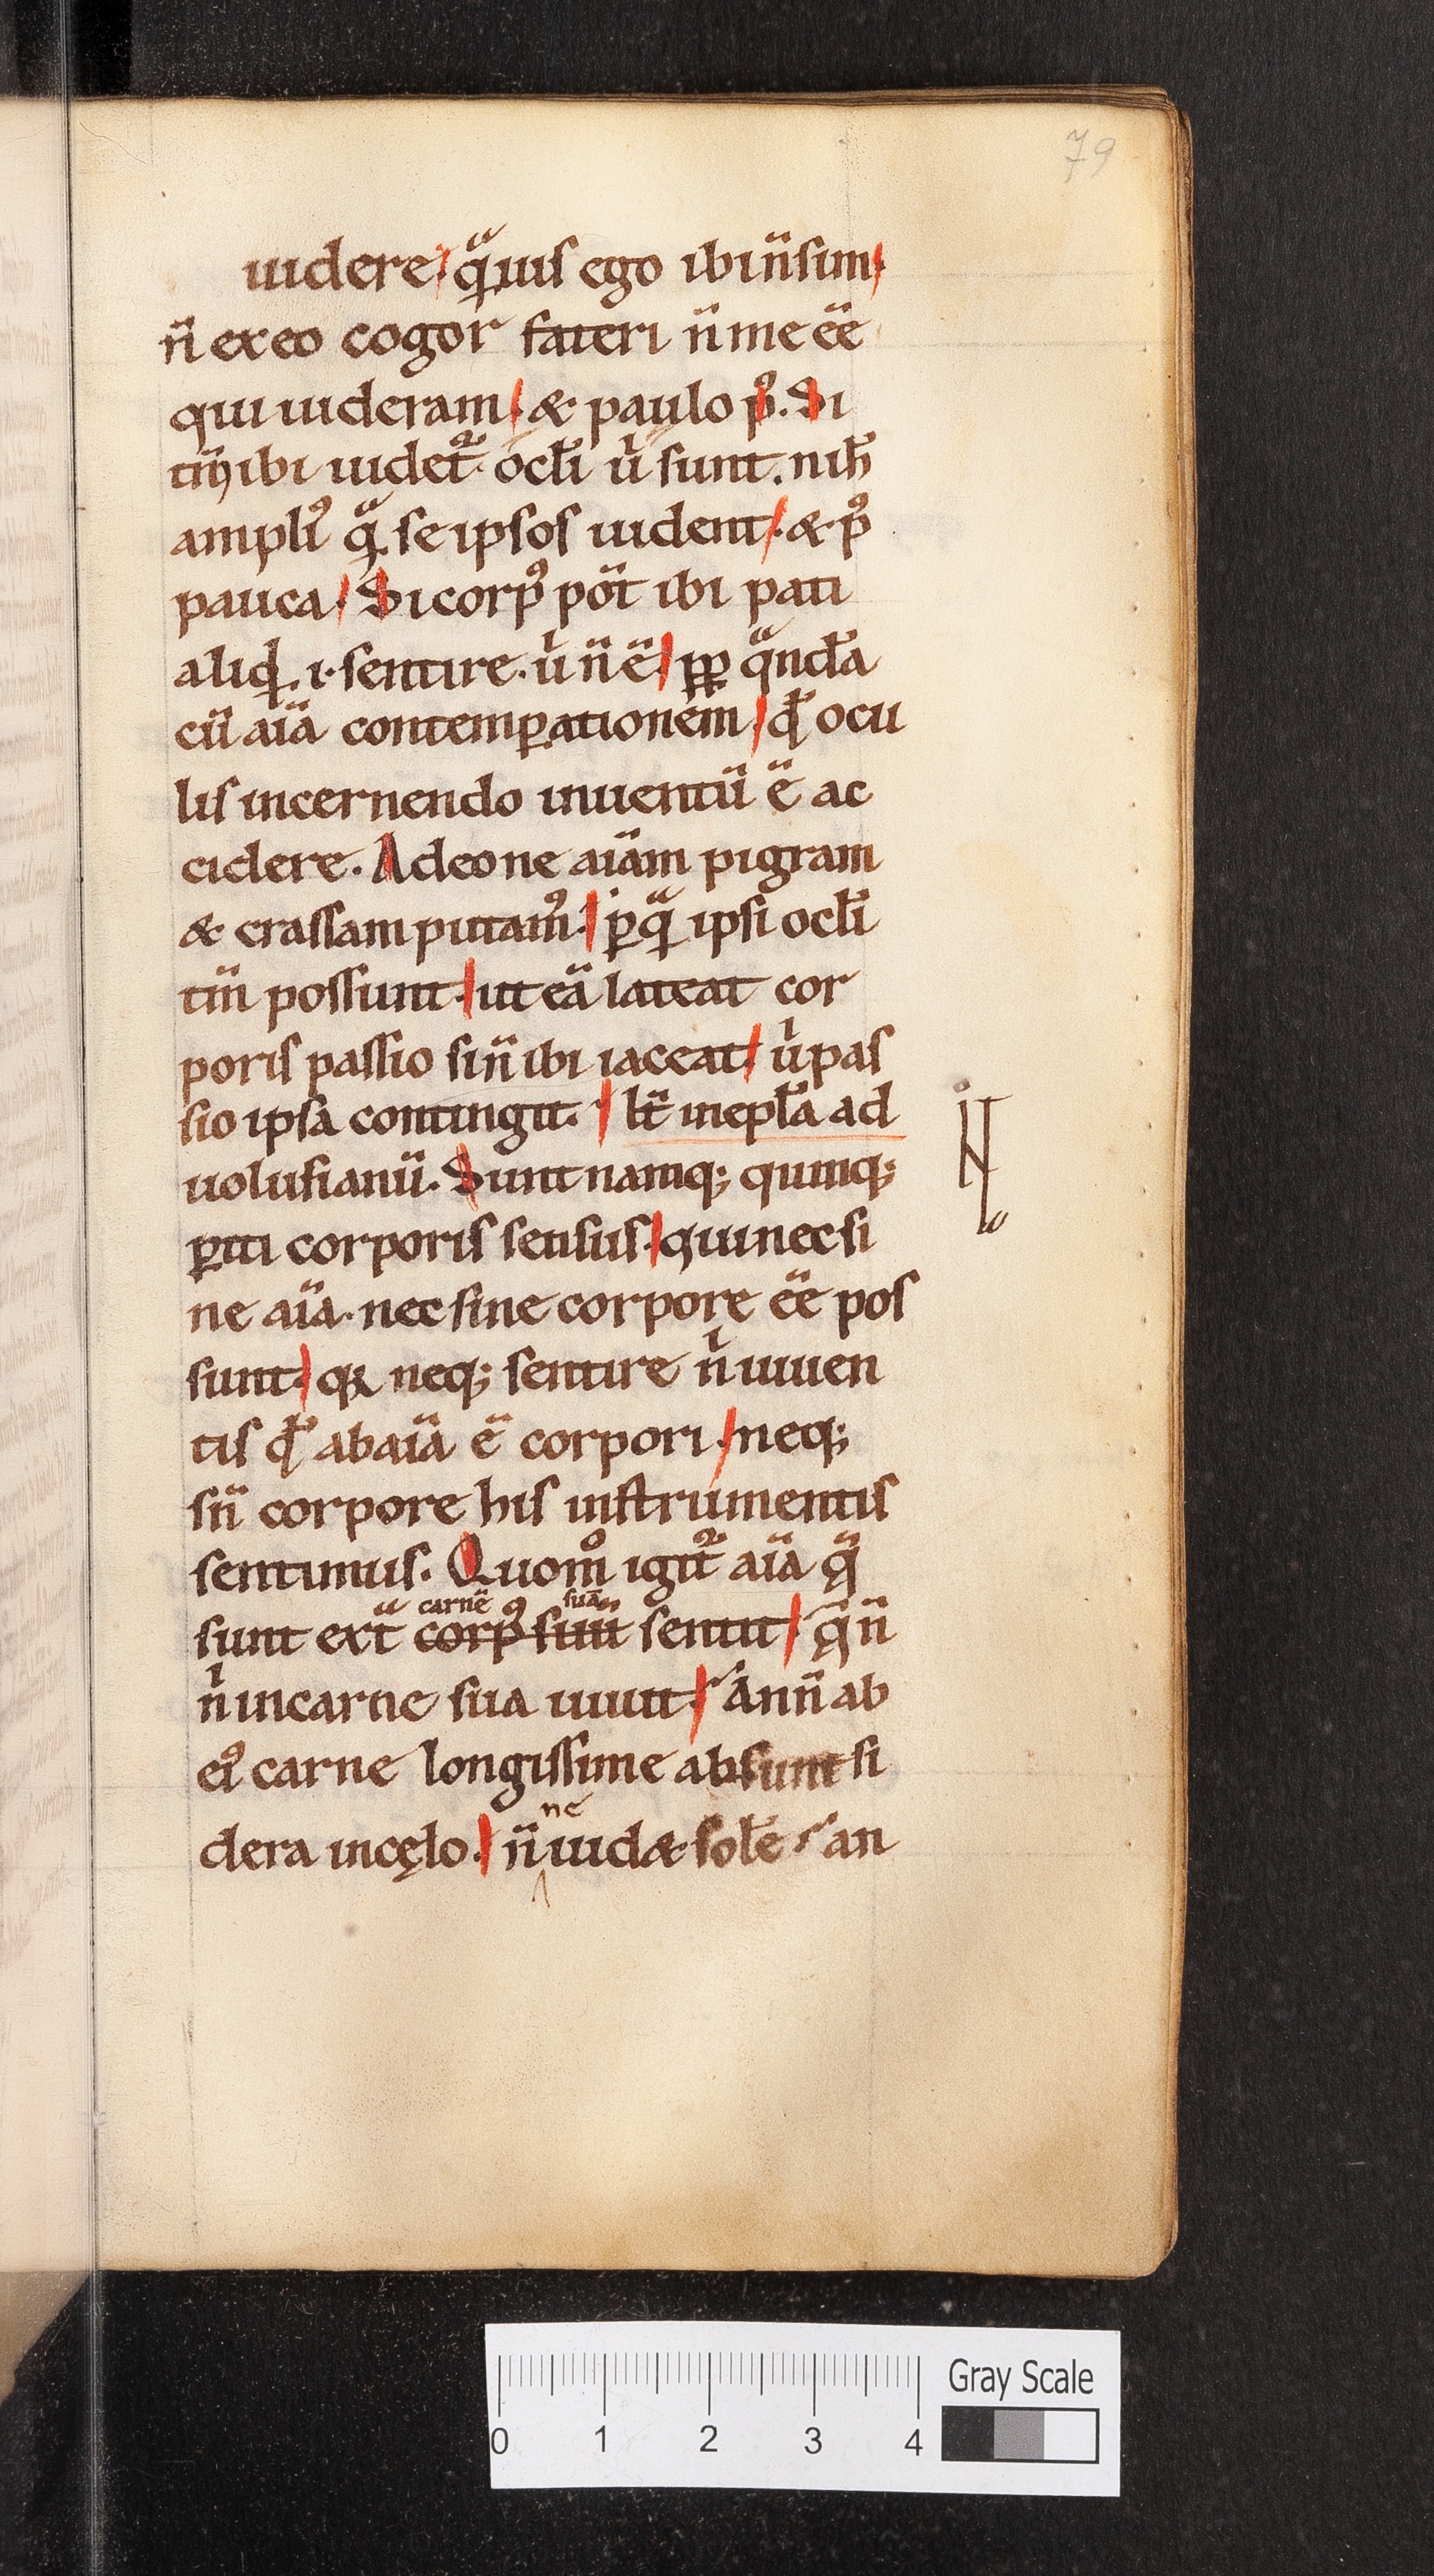 79
uidere. q̈uis ego ibi n̄ sim.
n̄ exeo cogor fateri n̄ me ēē
qui uideram. & paulo p̾. Si
tm̄ ibi uidet᷑. ocl̄i ů sunt. nih̄
ampli᷒ q̄ se ipsos uident. & p᷒
pauca. Si corp᷒ pōt ibi pati
aliq̣d. i. sentire. ů n̄ ē. ꝓp q̄ndā
cū aīā contemꝑationem. qd̄ ocu
lis in cernendo inuentū ē ac
cidere. Adeone aīam pigram
& crassam putam᷒. p̱q̄ ipsi ocl̄i
tm̄ possunt. ut eā lateat cor
poris passio si n̄ ibi iaceat. ů pas
sio ipsa contingit. It̄ in epl̄a ad
uolusianū. Sunt namq; quinq;
ꝑtiti corporis sensus. qui nec si
ne aīa. nec sine corpore ēē pos
sunt. qꝛ neq; sentire n̊ uiuen
tis qd̄ ab aīa ē corpori. neq;
sn̄ corpore his instrumentis
sentimus. Quom̊ igit᷑ aīa q̄
carnē suā
sunt ext̄ corp᷒ suū sentit. q̄ n̄
n̊ in carne sua uiuit. An n̄ ab
ei᷒ carne longissime absunt si
ne
dera in cęlo. n̄ uid& sol̄e an